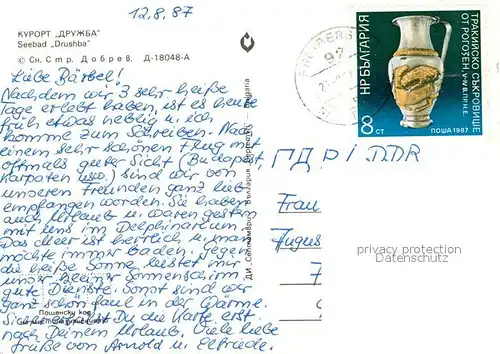 12.8.87
КУРОРТ „ДРУЖБА"
Seebad „Drushba"
© Сн. Стр. Добрев, Д-18048-А
Liebe Bärbel!
Nachdem wir 3 sehr heiße
Tage erlebt haben, ist es heute
früh etwas neblig u. ich
komme zum Schreiben. Nach
einem sehr schönen Flug mit
oftmals guter Sicht (Budapest,
Karpaten usw.) sind wir von
unseren Freunden ganz lieb
empfangen worden. Sie haben
auch Urlaub u. waren gestern
mit uns im Delphinarium.
Das Meer ist herrlich u. man
möchte immer baden. Gegen
die heiße Sonne leistet mir
unser kleiner Sonnenschirm
gute Dienste. Sonst sind wir
ganz schön faul in der Wärme.
Sicher erhältst Du die Karte erst
nach Deinem Urlaub. Viele liebe
Grüße von Arnold u. Elfriede.
Пощенски код
ДИ „Септември" България
Bulgaria
НР БЪЛГАРИЯ
ТРАКИЙСКО СЪКРОВИЩЕ
ОТ РОГОЗЕН, V-IV В. ПР. Н. Е.
8 СТ
ПОЩА 1987
ГДР / DDR
Frau
privacy protection
Datenschutz